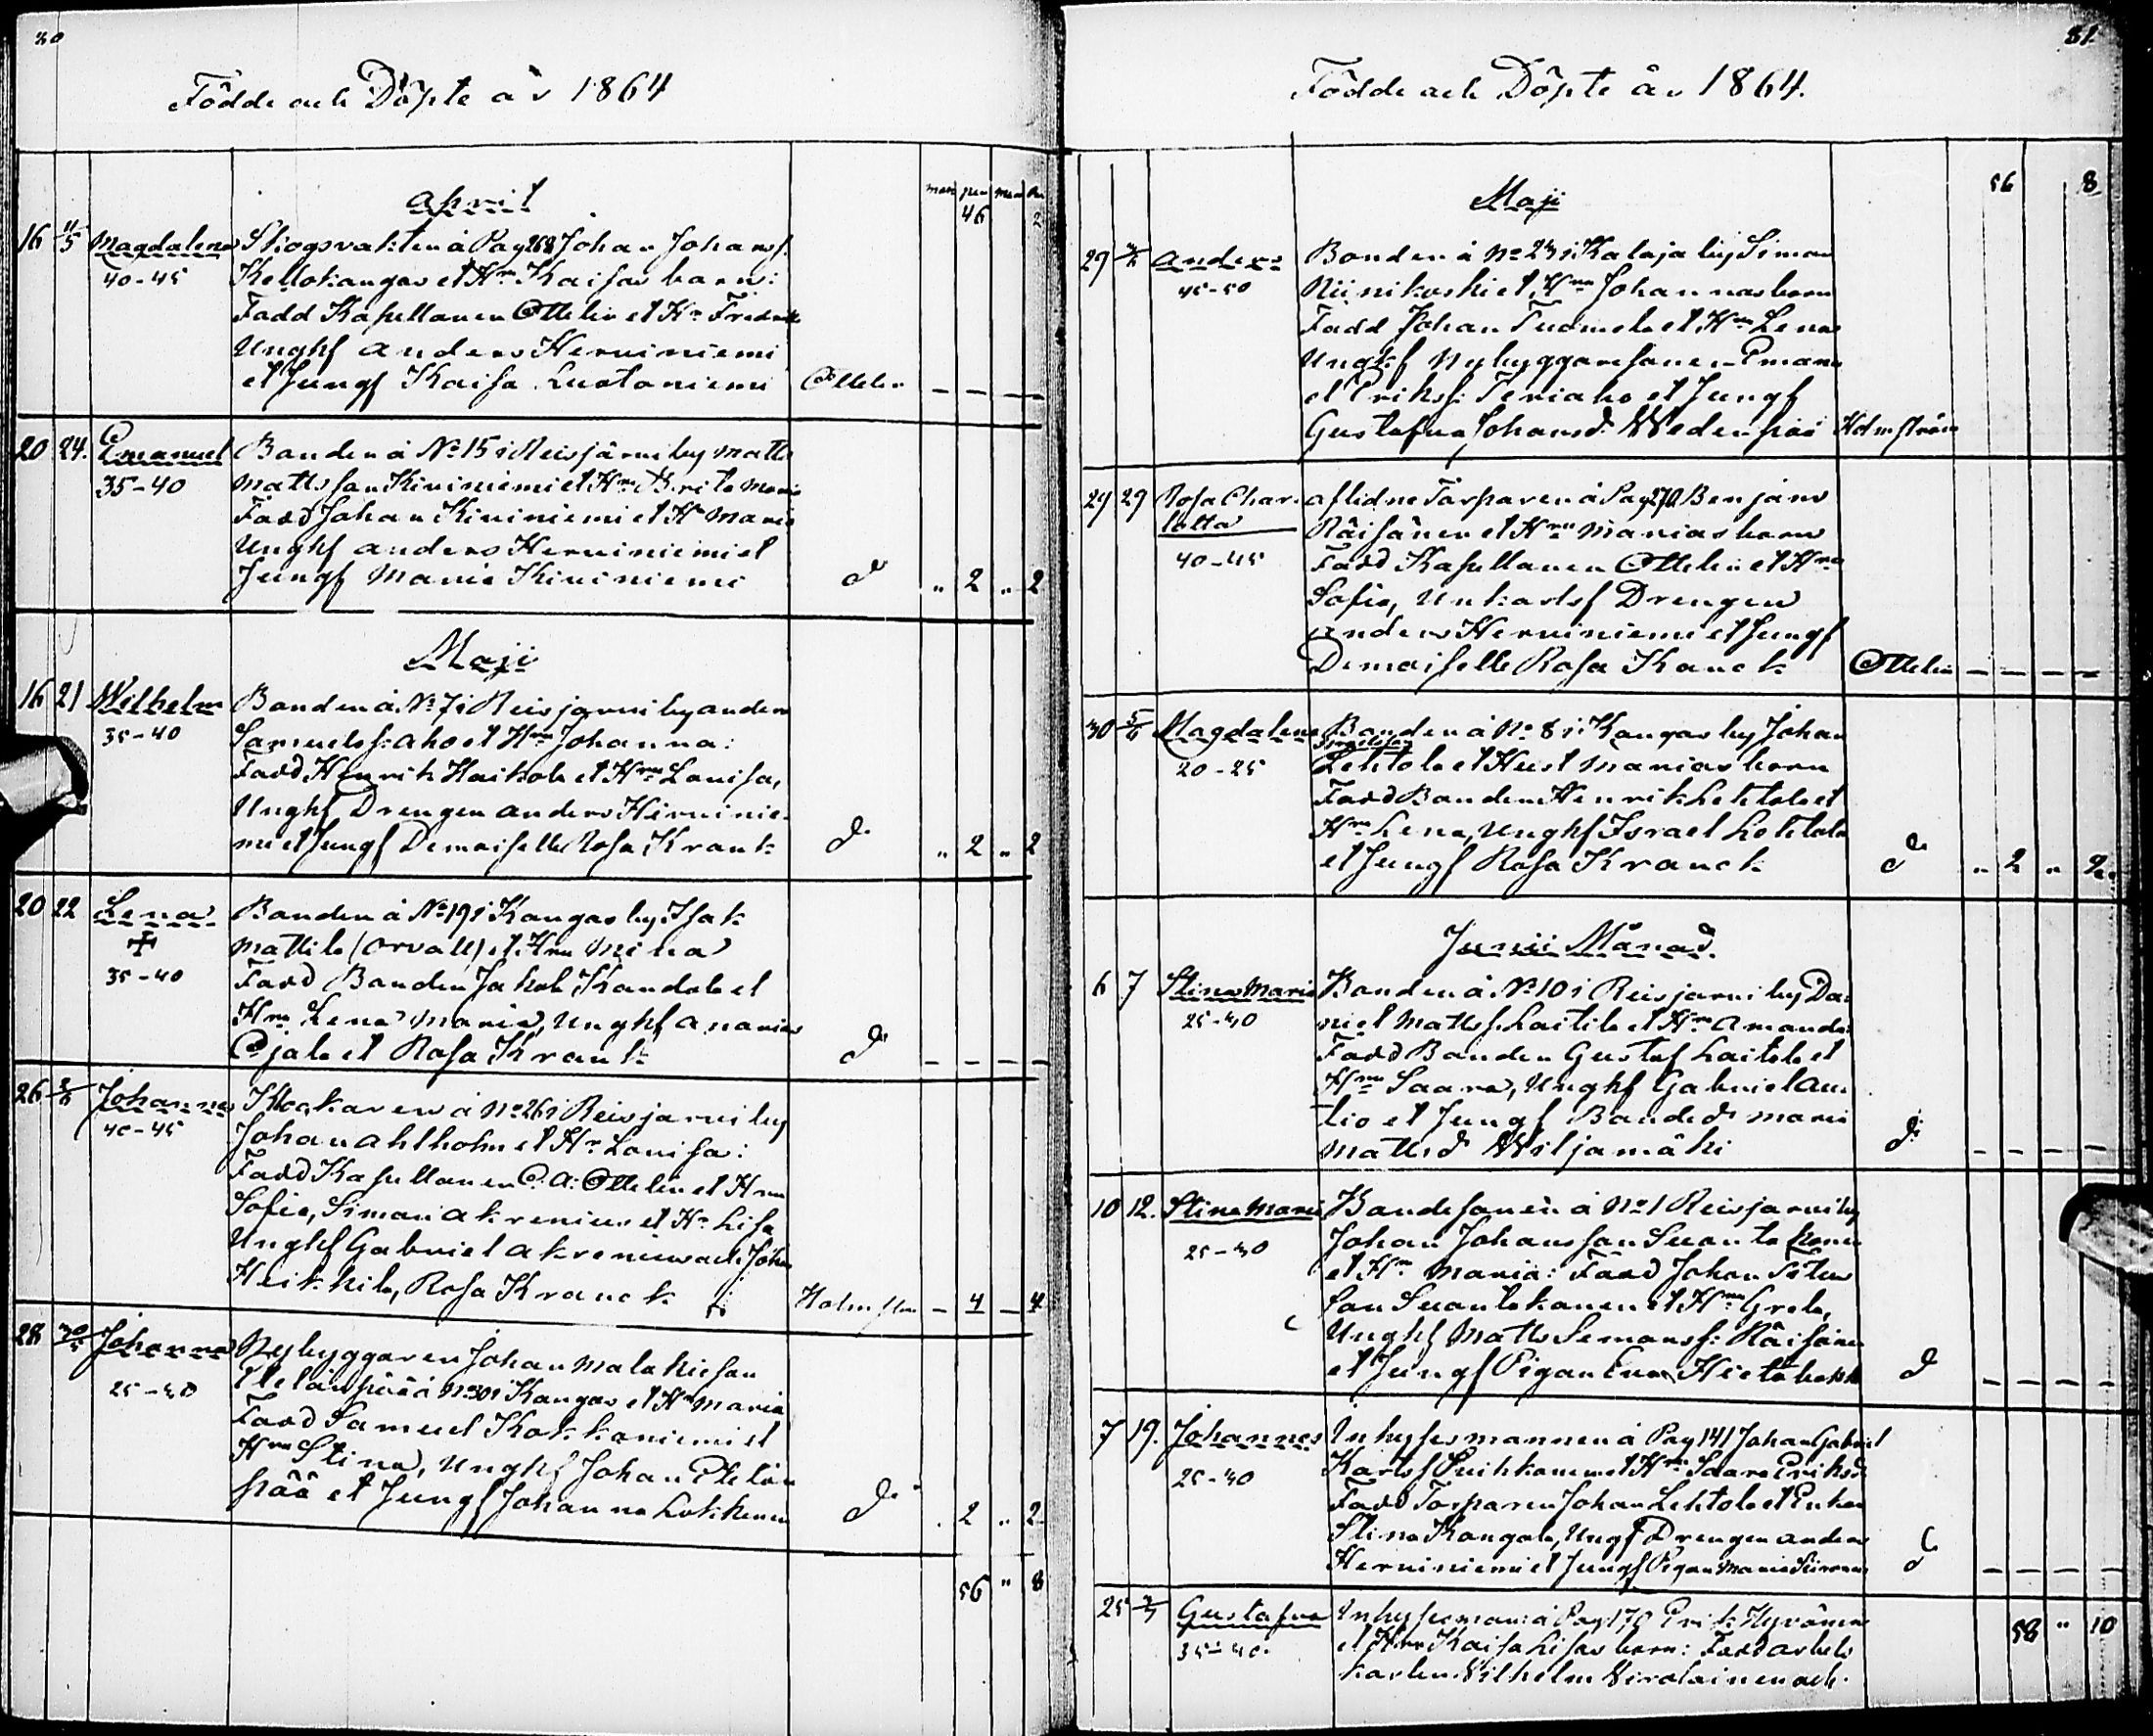 80
Födde och Döpte år 1864
April
man pen man pen
46 2
16 11/5 Magdalena Skogsvakten å Pag 268 Johan Johansf.
40-45 Kellokangas et Hru Kaisas barn:
Fadd Kapellanen Ottelin et Hr Fredrika
Unghf Anders Herviniemi
et Jungf Kaisa Lustaniemi Ottelin
20 24. Emanuel Bonden å No 15 i Reisjärvi by Matts
35-40 Mattsson Kiviniemi et Hru Brita Maria
Fadd Johan Kiviniemi et Hr Maria
Unghf Anders Herviniemi et
Jungf Maria Kiviniemi d " 2 " 2
Maji
16 21 Wilhelm Bonden å No 7 i Reisjarvi by Anders
35-40 Samuelsf: Aho et Hru Johanna:
Fadd Henrik Haikola et Hru Lovisa,
Unghf Drengen Anders Hervinie-
mi et Jungf Demoiselle Rosa Krank d. " 2 " 2
20 22 Lena Bonden å No 19 i Kangas by Isak
Mattila (Orvall) et Hru Mina
35-40 Fadd Bonden Jakob Kandola et
Hru Lena Maria, Unghf Ananias
Ojala et Rosa Krank d
26 Johannes Klockaren å No 26 i Reisjarvi by
40-45 Johan Ahlholm et Hr Lovisa:
Fadd Kapellanen C. A. Ottelin et Hru
Sofia, Simon Akrenius et Hr Lisa
Unghf Gabriel Akrenius och Johan
Heikkila, Rosa Kranck Holmstrm - 4 - 4
28 Johanna Nybyggaren Johan Malakiesson
25-30 Etelänpää å No 30 i Kangas et Hr Maria
Fadd Samuel Kokkoniemi et
Hru Stina, Unghf Johan Etelän
pää et Jungf Johanna Lokkenen d. " 2 " 2
56 " 8
81
Födde och Döpte år 1864.
56 8
Maji
29 Anders Bonden å No 24 i Kalaja by Simon
45-50 Niinikoski et Hru Johannas barn
Fadd Johan Tuomela et Hru Lena
Unghf Nybyggaresonen Emanu
el Eriksf: Teriaho et Jungf
Gustafva Johansd. Wedenpää Holmström
29 29 Rosa Char- Aflidne Torparen å Pag 270 Benjam
lotta Räisänen et Hru Marias barn
40-45 Fadd Kapellanen Ottelin et Hru
Sofia, Unkarlsf Drengen
Anders Herviniemi et Jungf
Demoiselle Rosa Kranck Ottelin
30 5/6 Magdalena Bonden å No 8 i Kangas by Johan
Israelsson
20-25 Lehtola et Hust Marias barn
Fadd Bonden Henrik Lehtola et
Hru Lena, Unghf Israel Lehtola
et Jungf Rosa Kranck d " 2 " 2
Junii Månad.
6 7 Stina Maria Bonden å No 10 i Reisjarvi by Da-
25-30 niel Mattsf. Laitila et Hr Amanda:
Fadd Bonden Gustaf Laitila et
Hru Saara, Unghf Gabriel Aut
tio et Jungf Bonded Maria
Mattsd Wiljamäki d.
10 12. Stina Maria Bondesonen å No 1 Reisjarvi by
25-30 Johan Johansson Suontakanen
et Hr Maria: Fadd Johan Peters
son Suontakanen et Hru Greta,
Unghf Matts Semonsf: Räisänen
et Jungf Pigan Eva Hietalahti d
7 19. Johannes Inhysesmannen å Pag 141 Johan Gabriel
25-30 Karlsf Puikkonen et Hr Saara Eriksd.
Fadd Torparen Johan Lehtola et Enkan
Stina Kangala, Ungf Drengen Anders
Herviniemi et Jungf Pigan Maria d
25 2/7 Gustafva Inhysesman: å Pag 170 Erik Hyvönen
35-40. et Hru Kaisa Lisas barn: Fadd Arbets
karlen Wilhelm Virolainen och 58 " 10